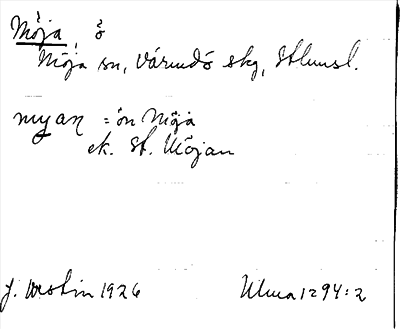 Möja, ö
Möja sn, Värmdö skg, Sthmsl.
myan = ön Möja
ek. St. Möjan
J. Westin 1926 Ulma 1294:2